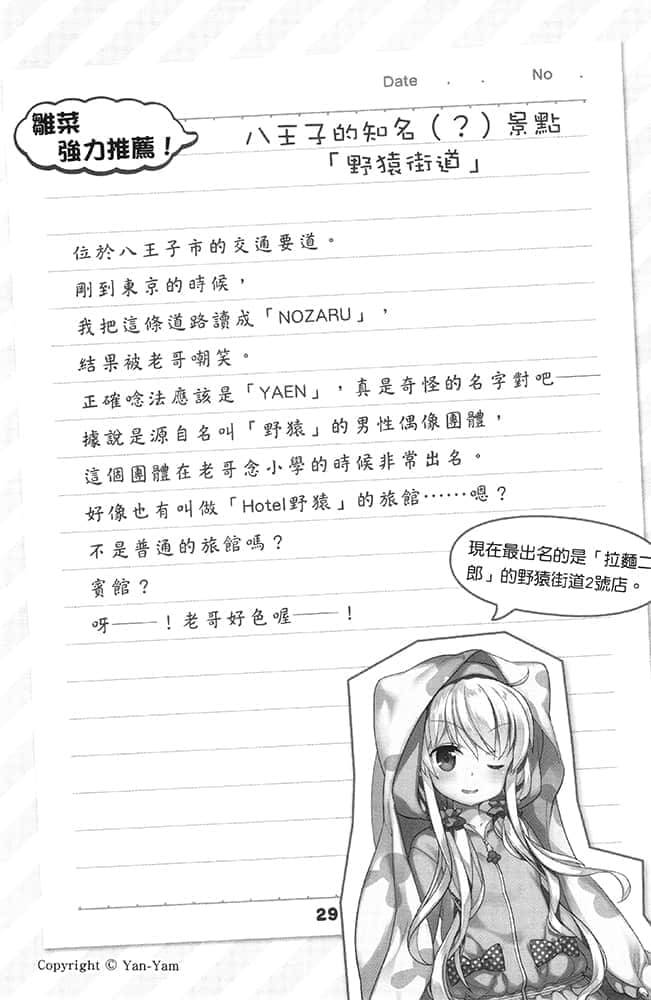 Date . . No .
雛菜
強力推薦！
八王子的知名（？）景點
「野猿街道」
位於八王子市的交通要道。
剛到東京的時候，
我把這條道路讀成「NOZARU」，
結果被老哥嘲笑。
正確唸法應該是「YAEN」，真是奇怪的名字對吧——
據說是源自名叫「野猿」的男性偶像團體，
這個團體在老哥念小學的時候非常出名。
好像也有叫做「Hotel野猿」的旅館……嗯？
不是普通的旅館嗎？
賓館？
呀——！老哥好色喔——！
現在最出名的是「拉麵二
郎」的野猿街道2號店。
29
Copyright © Yan-Yam